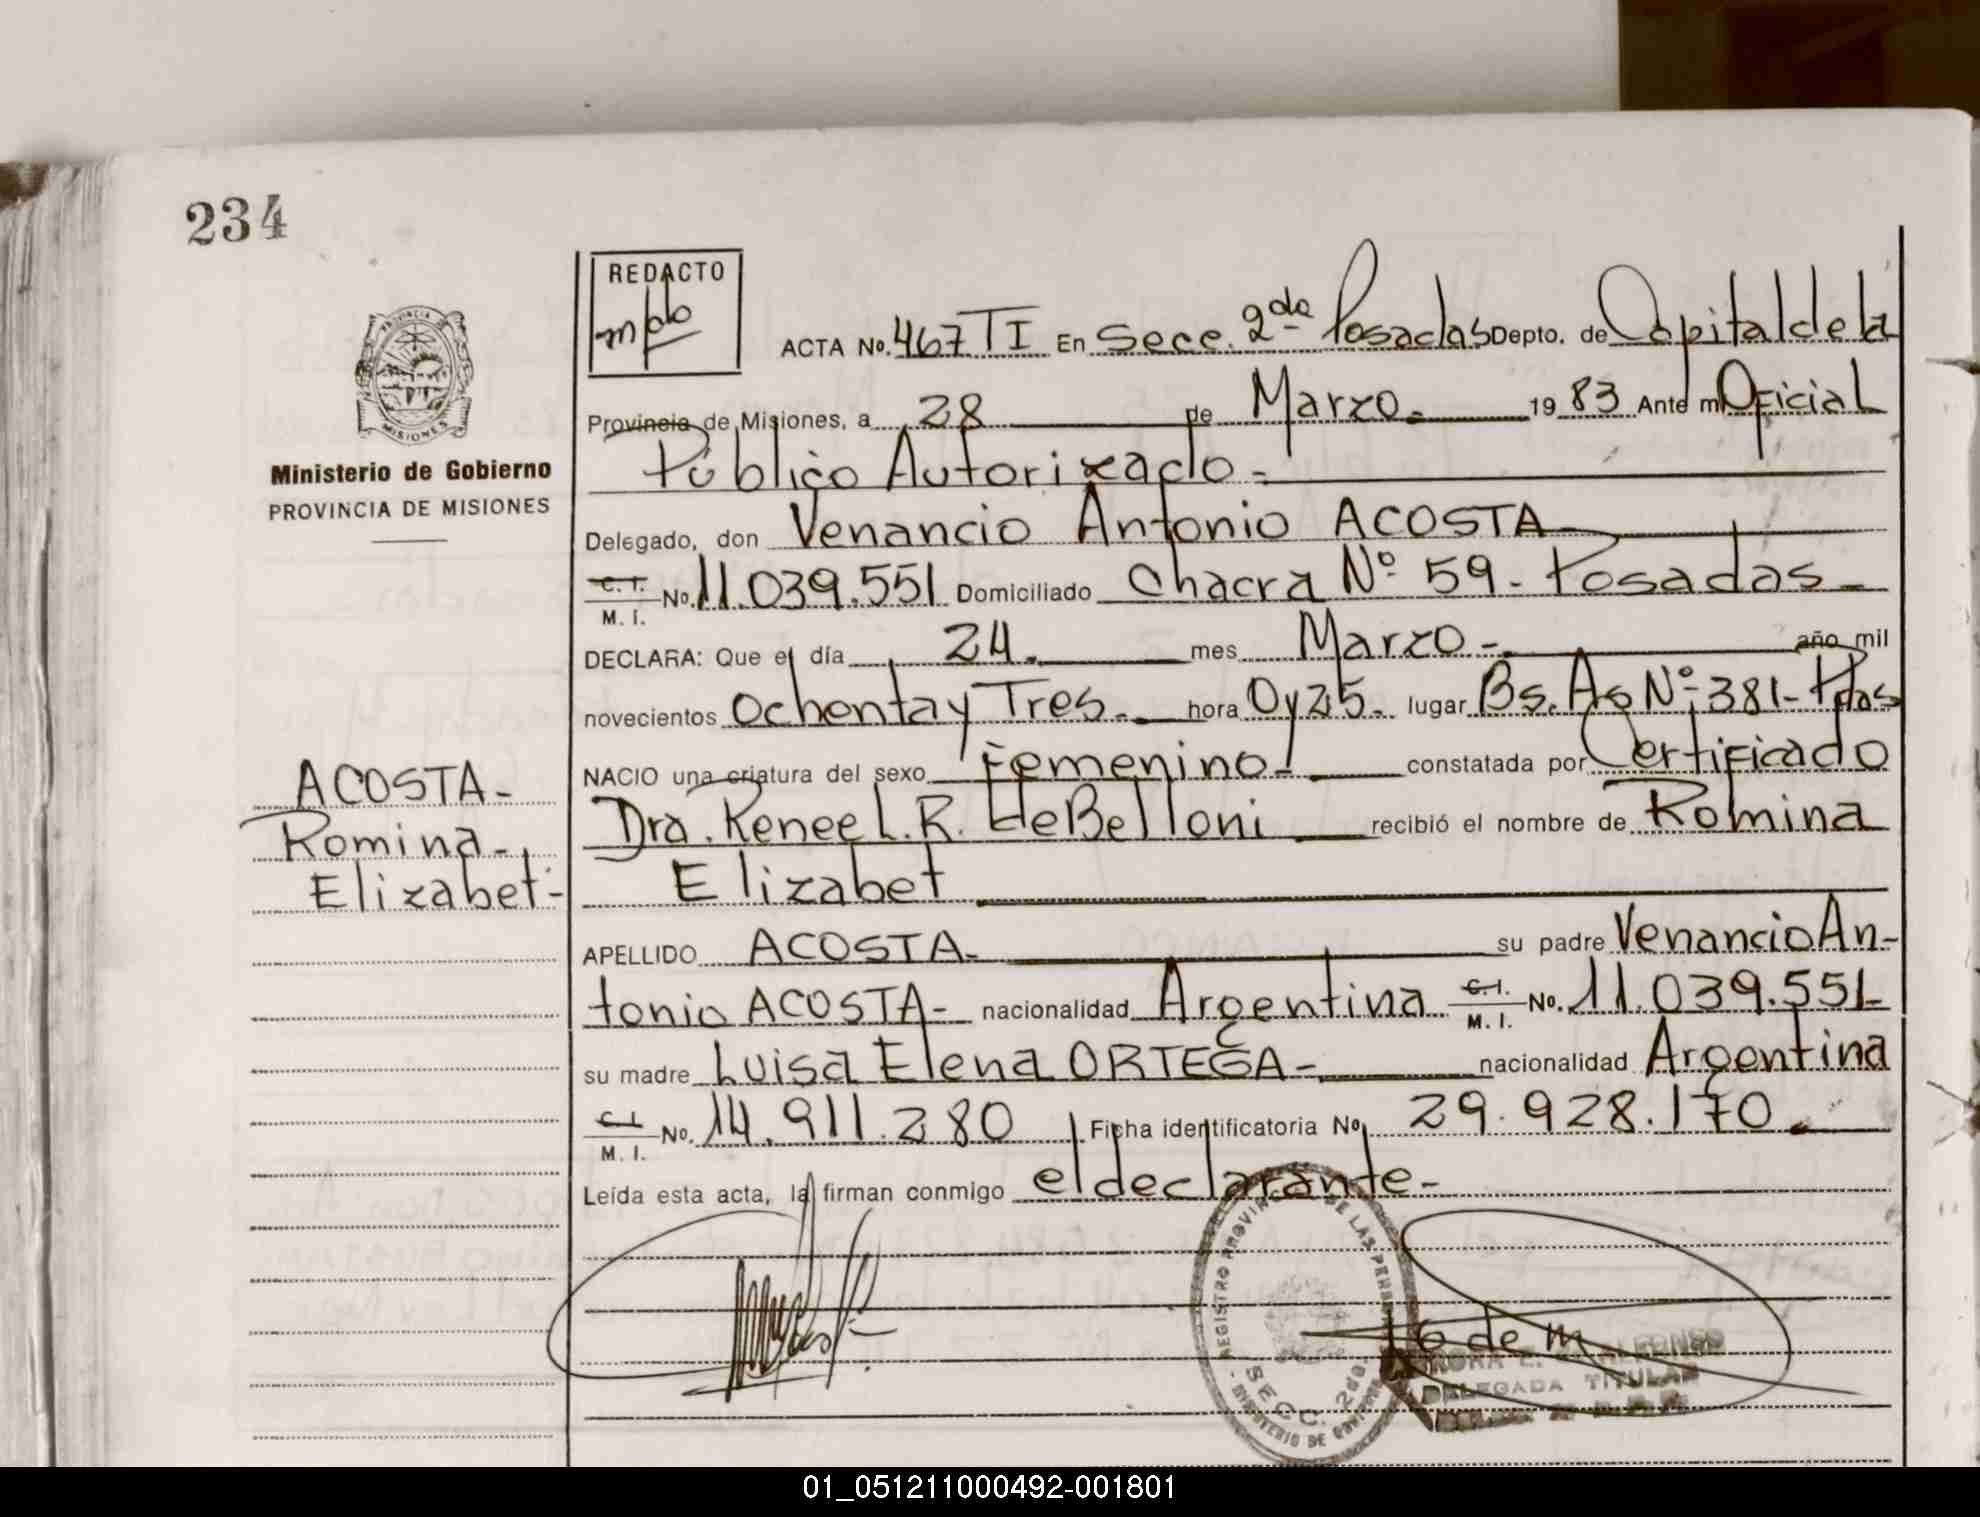 234
REDACTO
ACTA No. 467 TI En Secc. 2da Posadas Depto. de Capital de la
Provincia de Misiones, a 28 de Marzo.- 1983 Ante mi Oficial
Público Autorizado.-
Delegado, don Venancio Antonio ACOSTA
C. I.
M. I. No. 11.039.551 Domiciliado Chacra Nº 59- Posadas-
DECLARA: Que el día 24.- mes Marzo.- año mil
novecientos ochenta y Tres.- hora 0y25.- lugar Bs. As Nº 381- Pdas
NACIO una criatura del sexo Femenino.- constatada por Certificado
Dra. Renee L. R. de Belloni recibió el nombre de Romina
Elizabet
APELLIDO ACOSTA- su padre Venancio An-
tonio ACOSTA- nacionalidad Argentina C. I.
M. I. No. 11.039.551-
su madre Luisa Elena ORTEGA- nacionalidad Argentina
C. I.
M. I. No. 14.911.280 Ficha identificatoria No. 29.928.170.
Leída esta acta, la firman conmigo el declarante-
PROVINCIA DE
MISIONES
Ministerio de Gobierno
PROVINCIA DE MISIONES
ACOSTA-
Romina-
Elizabet-
REGISTRO PROVINCIAL DE LAS PERSONAS
SECC. 2da.
MINISTERIO DE GOBIERNO
DELEGADA TITULAR
01_051211000492-001801